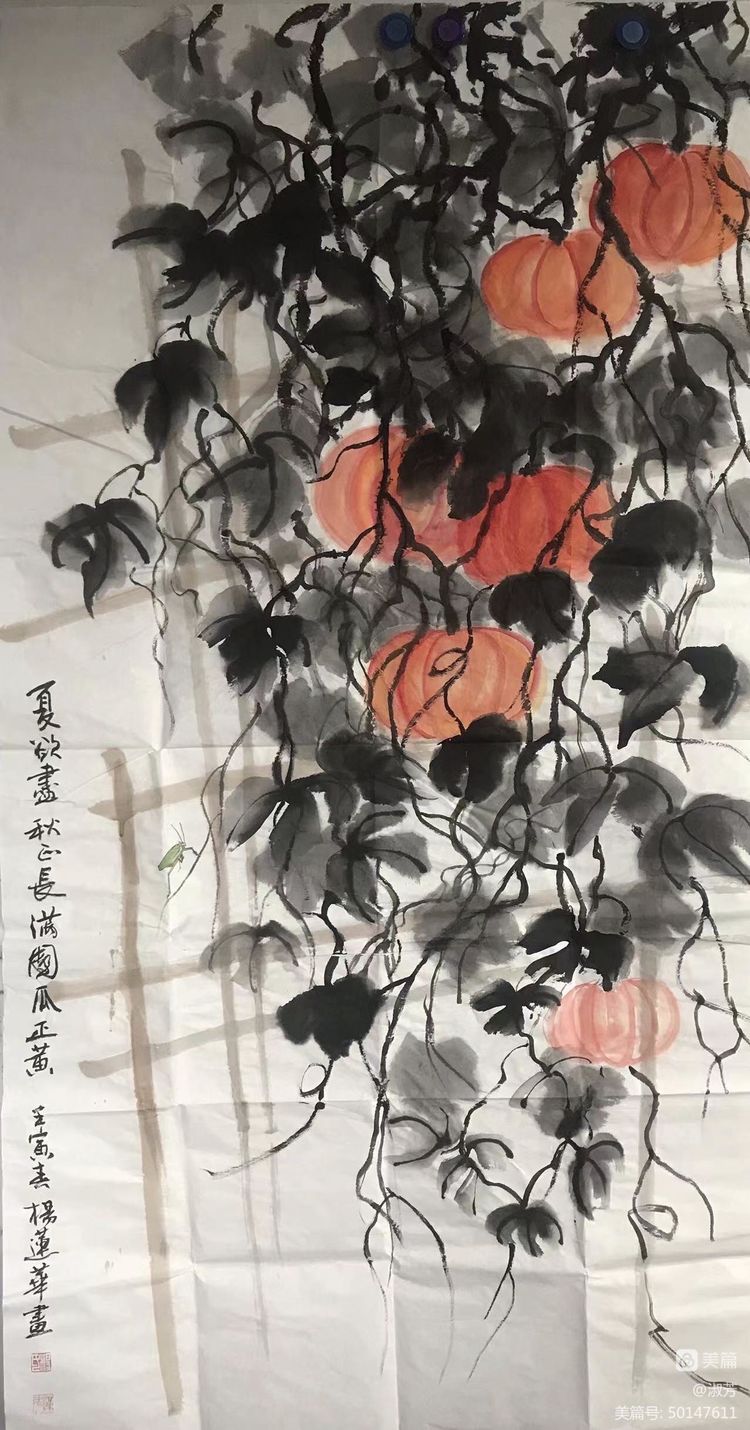 夏欲盡秋正長滿園瓜正黃
壬寅春楊蓮華畫
美篇
@淑芳
美篇号: 50147611